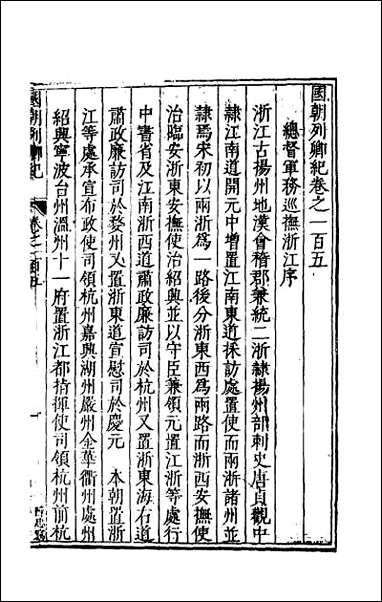 國朝列卿紀卷之一百五
總督軍務巡撫浙江序
浙江古揚州地漢會稽郡兼統二浙隸揚州部刺史唐貞觀中
隸江南道開元中增置江南東道採訪處置使而兩浙諸州並
隸焉宋初以兩浙爲一路後分浙東西爲兩路而浙西安撫使
治臨安浙東安撫使治紹興並以守臣兼領元置江浙等處行
中書省及江南浙西道肅政廉訪司於杭州又置浙東海右道
肅政廉訪司於婺州又置浙東道宣慰司於慶元 本朝置浙
江等處承宣布政使司領杭州嘉興湖州嚴州金華衢州處州
紹興寧波台州溫州十一府置浙江都指揮使司領杭州前杭
國朝列卿紀
卷之一百五
一